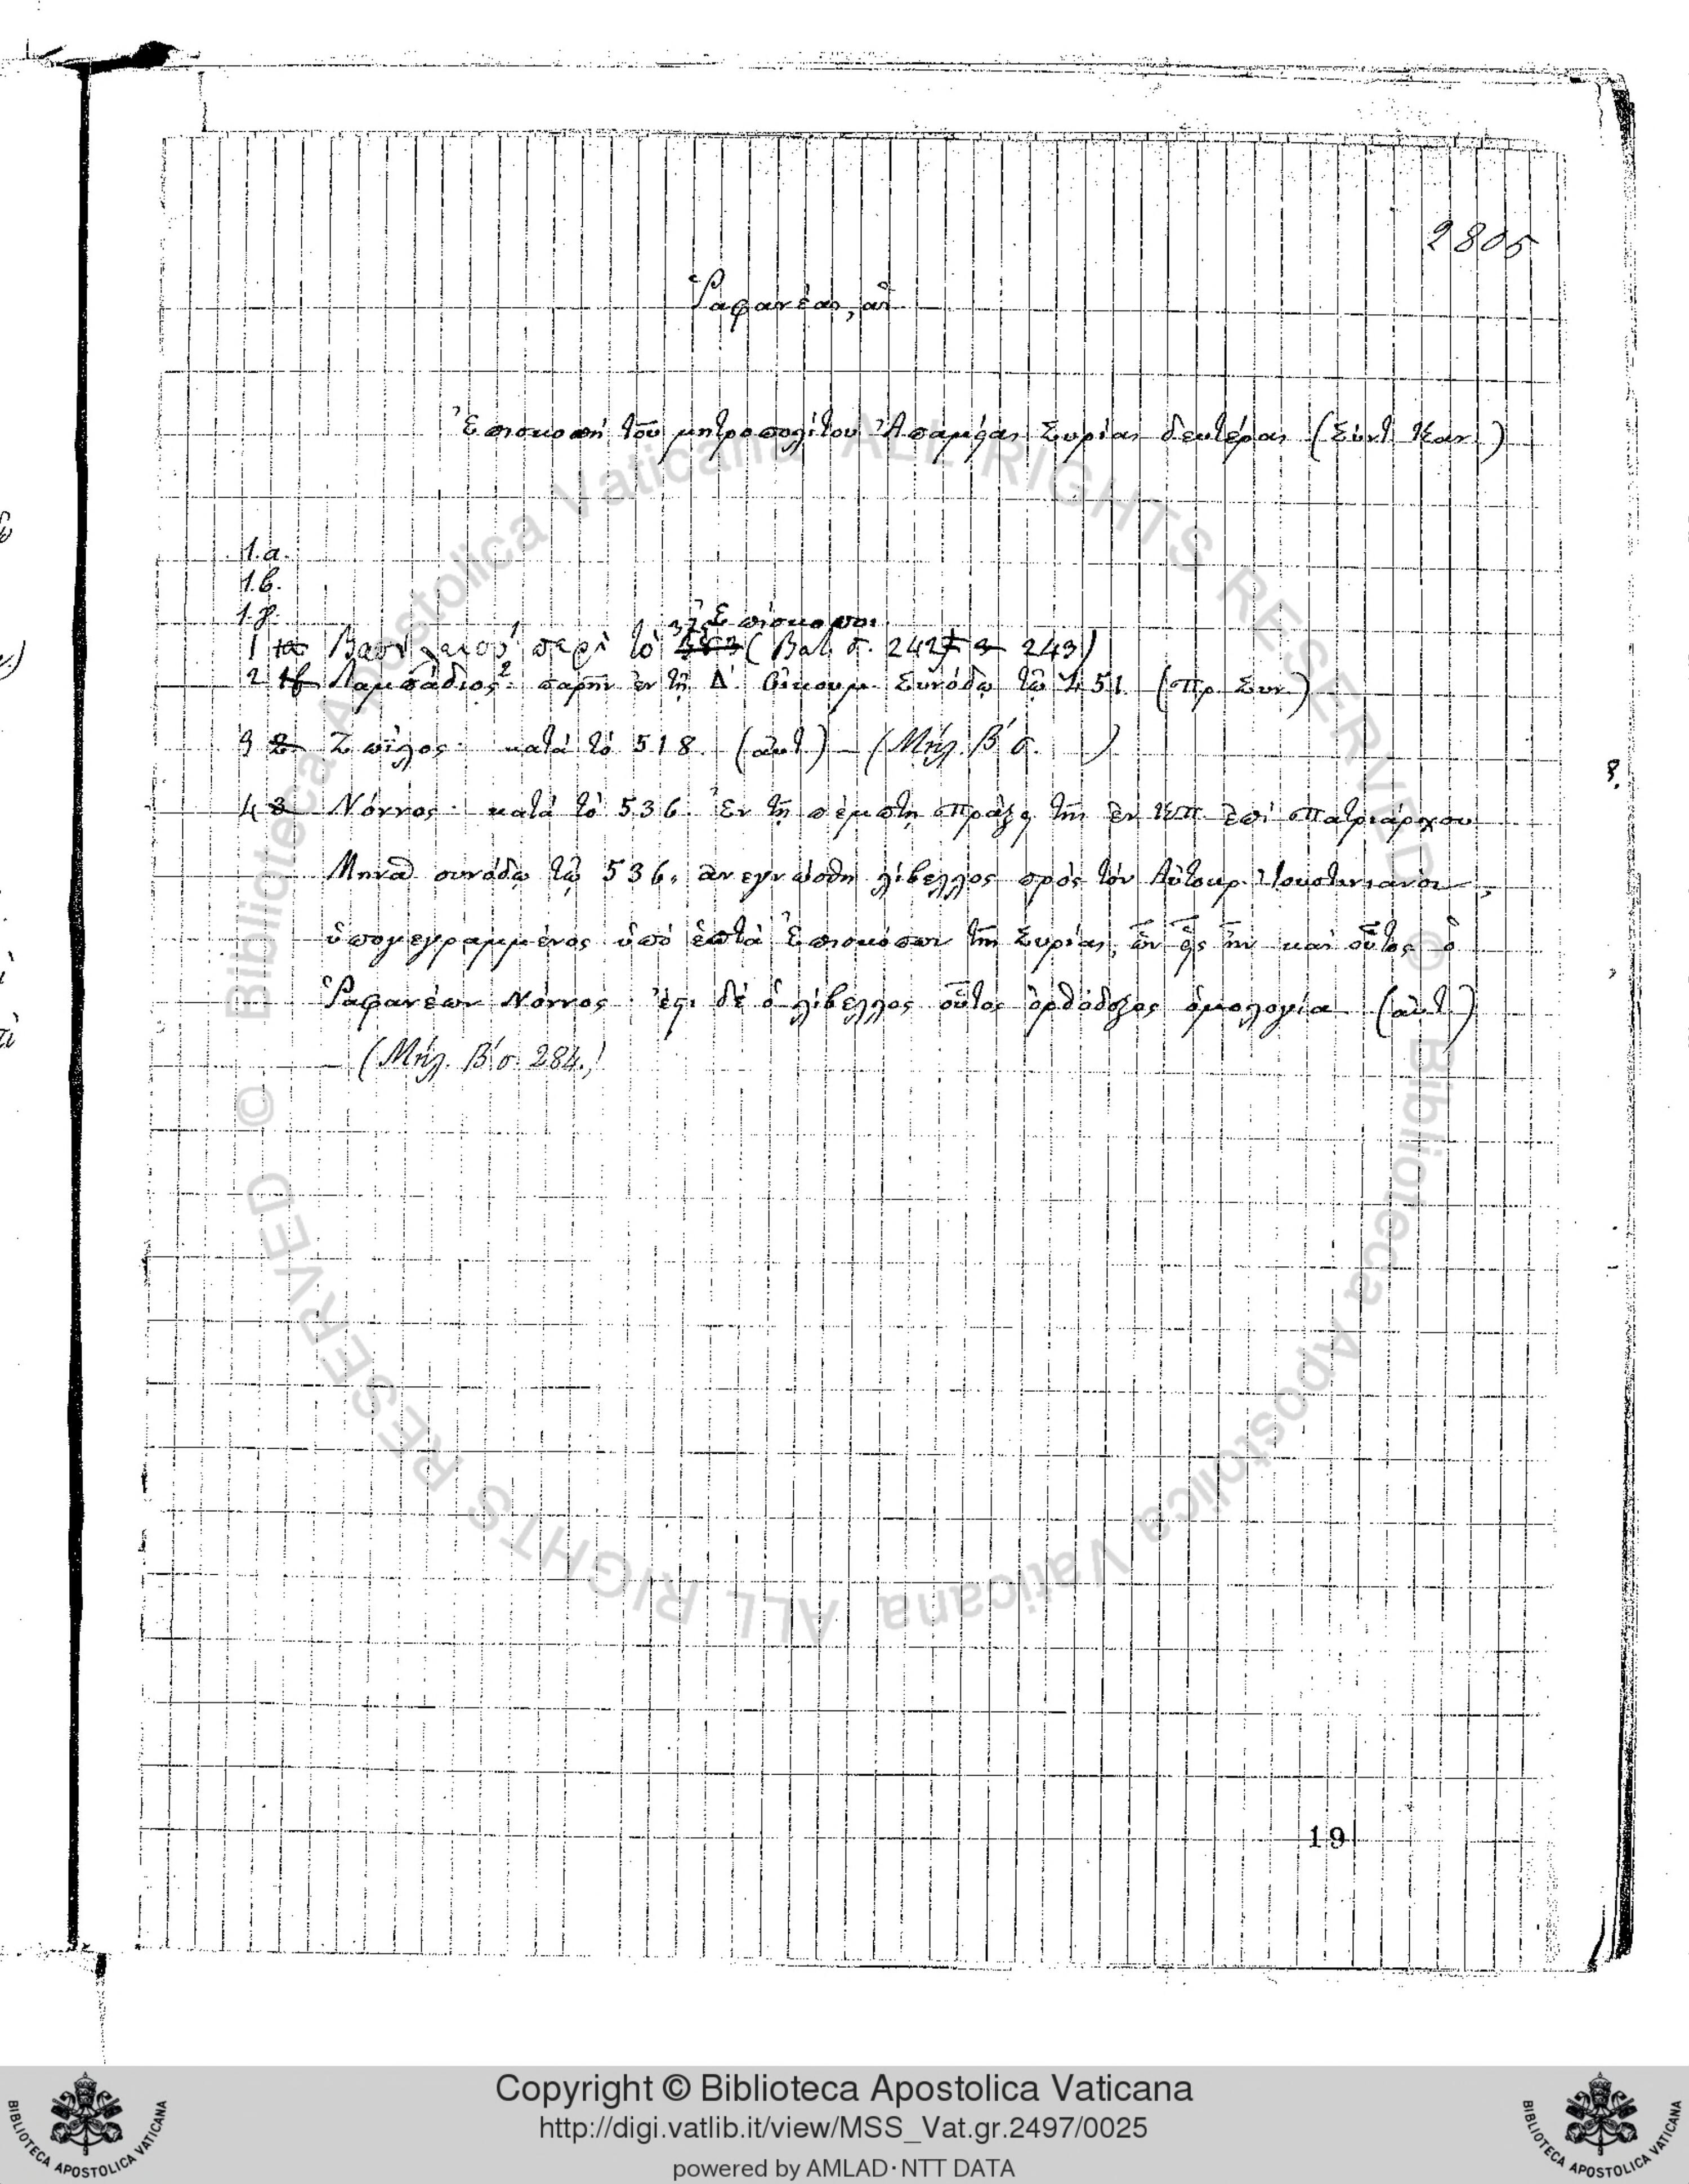 2805
Ῥαφανέαι, αἱ
Ἐπισκοπὴ τοῦ μητροπολίτου Ἀπαμείας Συρίας δευτέρας (Σύντ. Καν.)
1.α.
1.β.
1.γ.
Ἐπίσκοποι
1 περὶ τὸ (Βαλ. σ. 242 243)
2 Λαμπάδιος² παρῆν ἐν τῇ Δ΄. Οἰκουμ. Συνόδῳ τῷ 451. (Πρ. Συν.)
3 Ζωΐλος· κατὰ τὸ 518. (αὐτ.) – (Μήλ. Β΄ σ. )
4 Νόννος· κατὰ τὸ 536. Ἐν τῇ πέμπτῃ πράξει τῆς ἐν ΚΠ. ἐπὶ Πατριάρχου
Μηνᾶ συνόδῳ τῷ 536. ἀνεγνώσθη λίβελλος πρὸς τὸν Αὐτοκρ. Ἰουστινιανὸν,
ὑπογεγραμμένος ὑπὸ ἑπτὰ Ἐπισκόπων τῆς Συρίας, ὧν εἷς ἦν καὶ οὗτος ὁ
Ῥαφανέων Νόννος· ἔστι δὲ ὁ λίβελλος οὗτος ὀρθόδοξος ὁμολογία (αὐτ.)
– (Μήλ. Β΄ σ. 284.)
19
Copyright © Biblioteca Apostolica Vaticana
http://digi.vatlib.it/view/MSS_Vat.gr.2497/0025
powered by AMLAD·NTT DATA
BIBLIOTECA APOSTOLICA VATICANA
BIBLIOTECA APOSTOLICA VATICANA
© Biblioteca Apostolica Vaticana ALL RIGHTS RESERVED
© Biblioteca Apostolica Vaticana ALL RIGHTS RESERVED